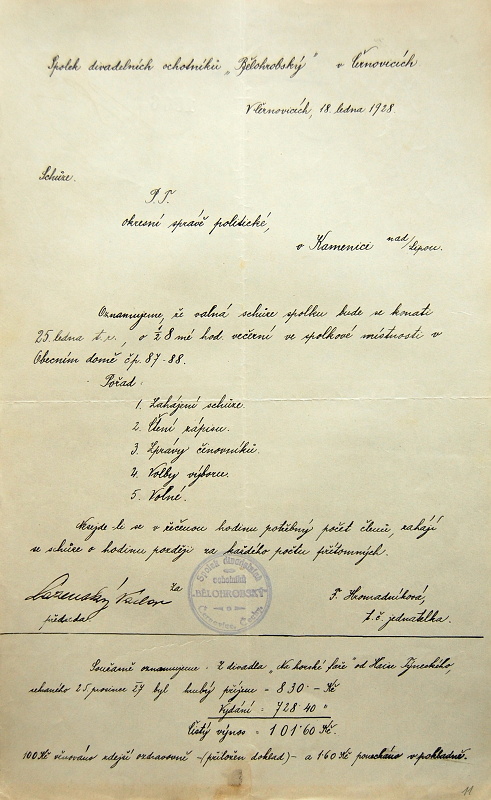 Spolek divadelních ochotníků „Bělohrobský" v Černovicích
V Černovicích, 18. ledna 1928.
Schůze.
P. T.
okresní správě politické,
v Kamenici nad/Lipou.
Oznamujeme, že valná schůze spolku bude se konati
25. ledna t. r., o ½ 8 mé hod. večerní ve spolkové místnosti v
Obecním domě čp. 87-88.
Pořad:
1. Zahájení schůze.
2. Čtení zápisu.
3. Zprávy činovníků.
4. Volby výboru.
5. Volné.
Nesejde-li se v řečenou hodinu potřebný počet členů, zahájí
se schůze o hodinu později za každého počtu přítomných.
za
předseda
Spolek divadelních
ochotníků
"BĚLOHROBSKÝ"
F. Hromadníková,
t. č. jednatelka.
Současně oznamujeme - Z divadla „Na horské faře" od Haise Týneckého,
sehraného 25. prosince 27 byl hrubý příjem = 830 - Kč
Vydání = 728·40 "
Čistý výnos = 101·60 Kč.
100 Kč věnováno zdejší ozdravovně -(přiložen doklad)- a 1·60 Kč ponecháno v pokladně.
11